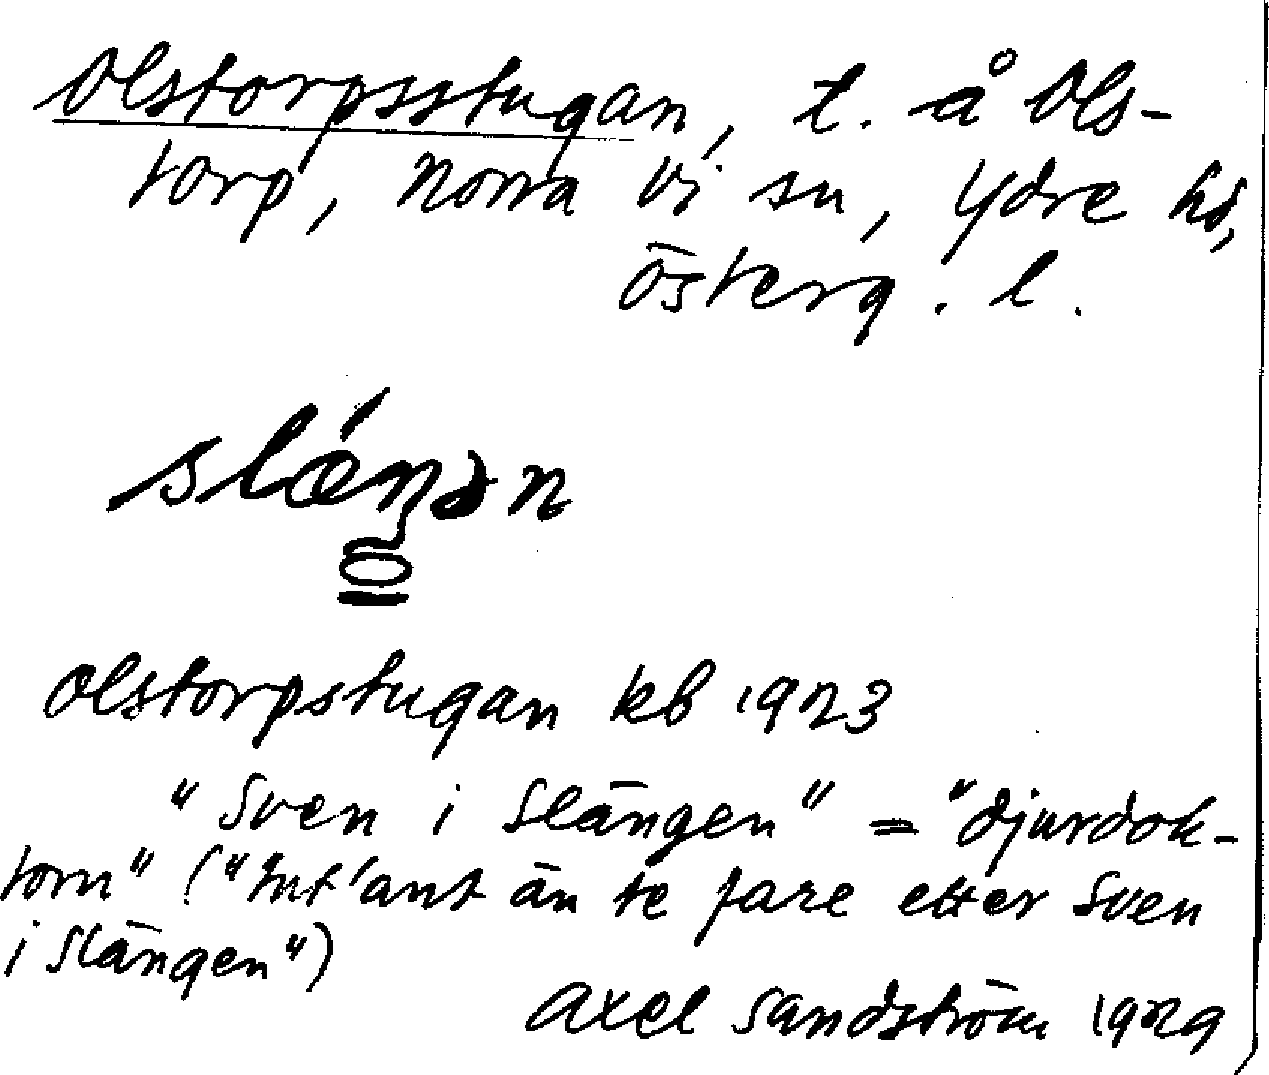 Olstorpsstugan, t. å Ols-
torp, Norra Vi sn, Ydre hd,
Österg. l.
slǽŋən
Olstorpstugan kb 1923
"Sven i Slängen" = "djurdok-
torn" ("Int'ant än te fare etter Sven
i Slängen")
Axel Sandström 1929